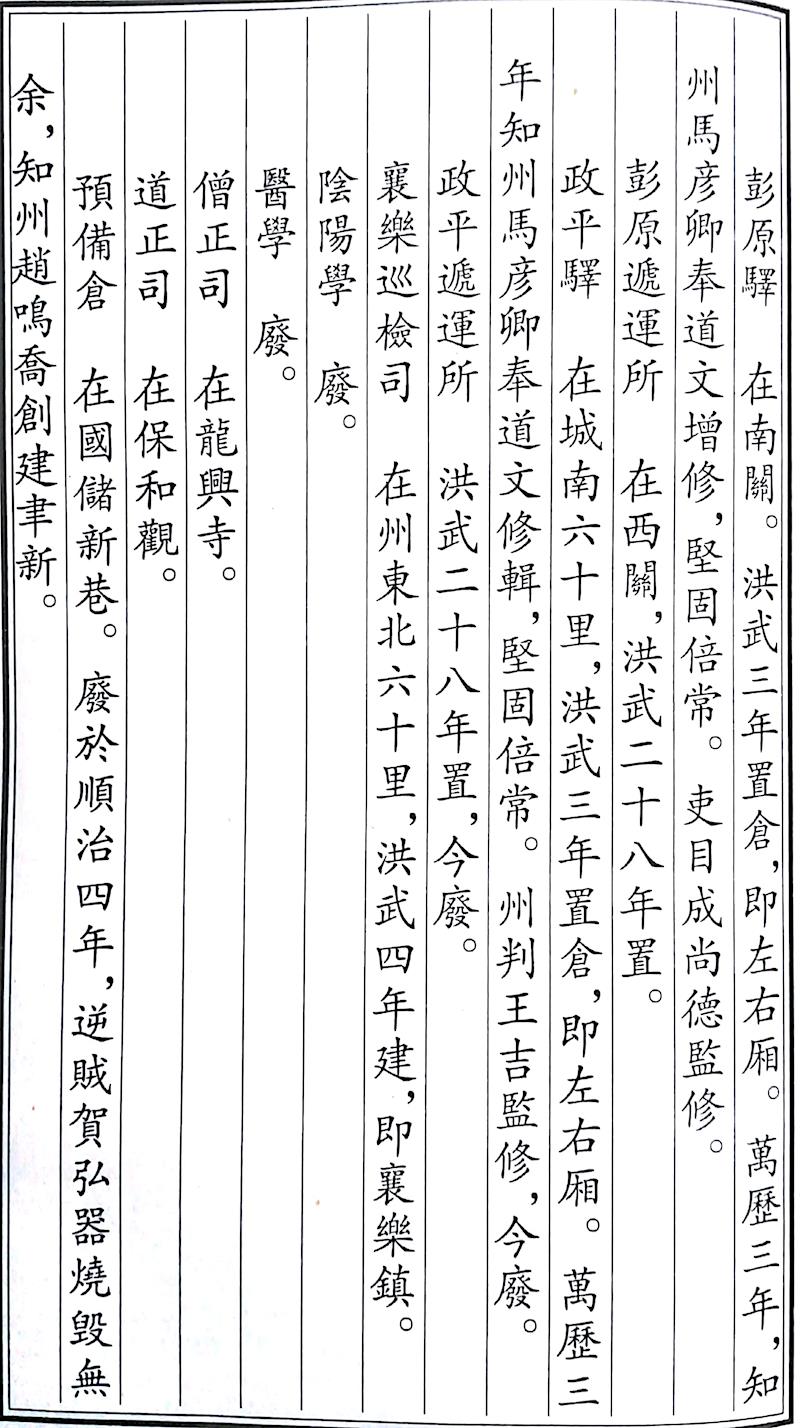 彭原驛　在南關。洪武三年置倉，即左右厢。萬歷三年，知
州馬彦卿奉道文增修，堅固倍常。吏目成尚德監修。
彭原遞運所　在西關，洪武二十八年置。
政平驛　在城南六十里，洪武三年置倉，即左右厢。萬歷三
年知州馬彦卿奉道文修輯，堅固倍常。州判王吉監修，今廢。
政平遞運所　洪武二十八年置，今廢。
襄樂巡檢司　在州東北六十里，洪武四年建，即襄樂鎮。
陰陽學　廢。
醫學　廢。
僧正司　在龍興寺。
道正司　在保和觀。
預備倉　在國儲新巷。廢於順治四年，逆賊賀弘器燒毀無
余，知州趙鳴喬創建聿新。